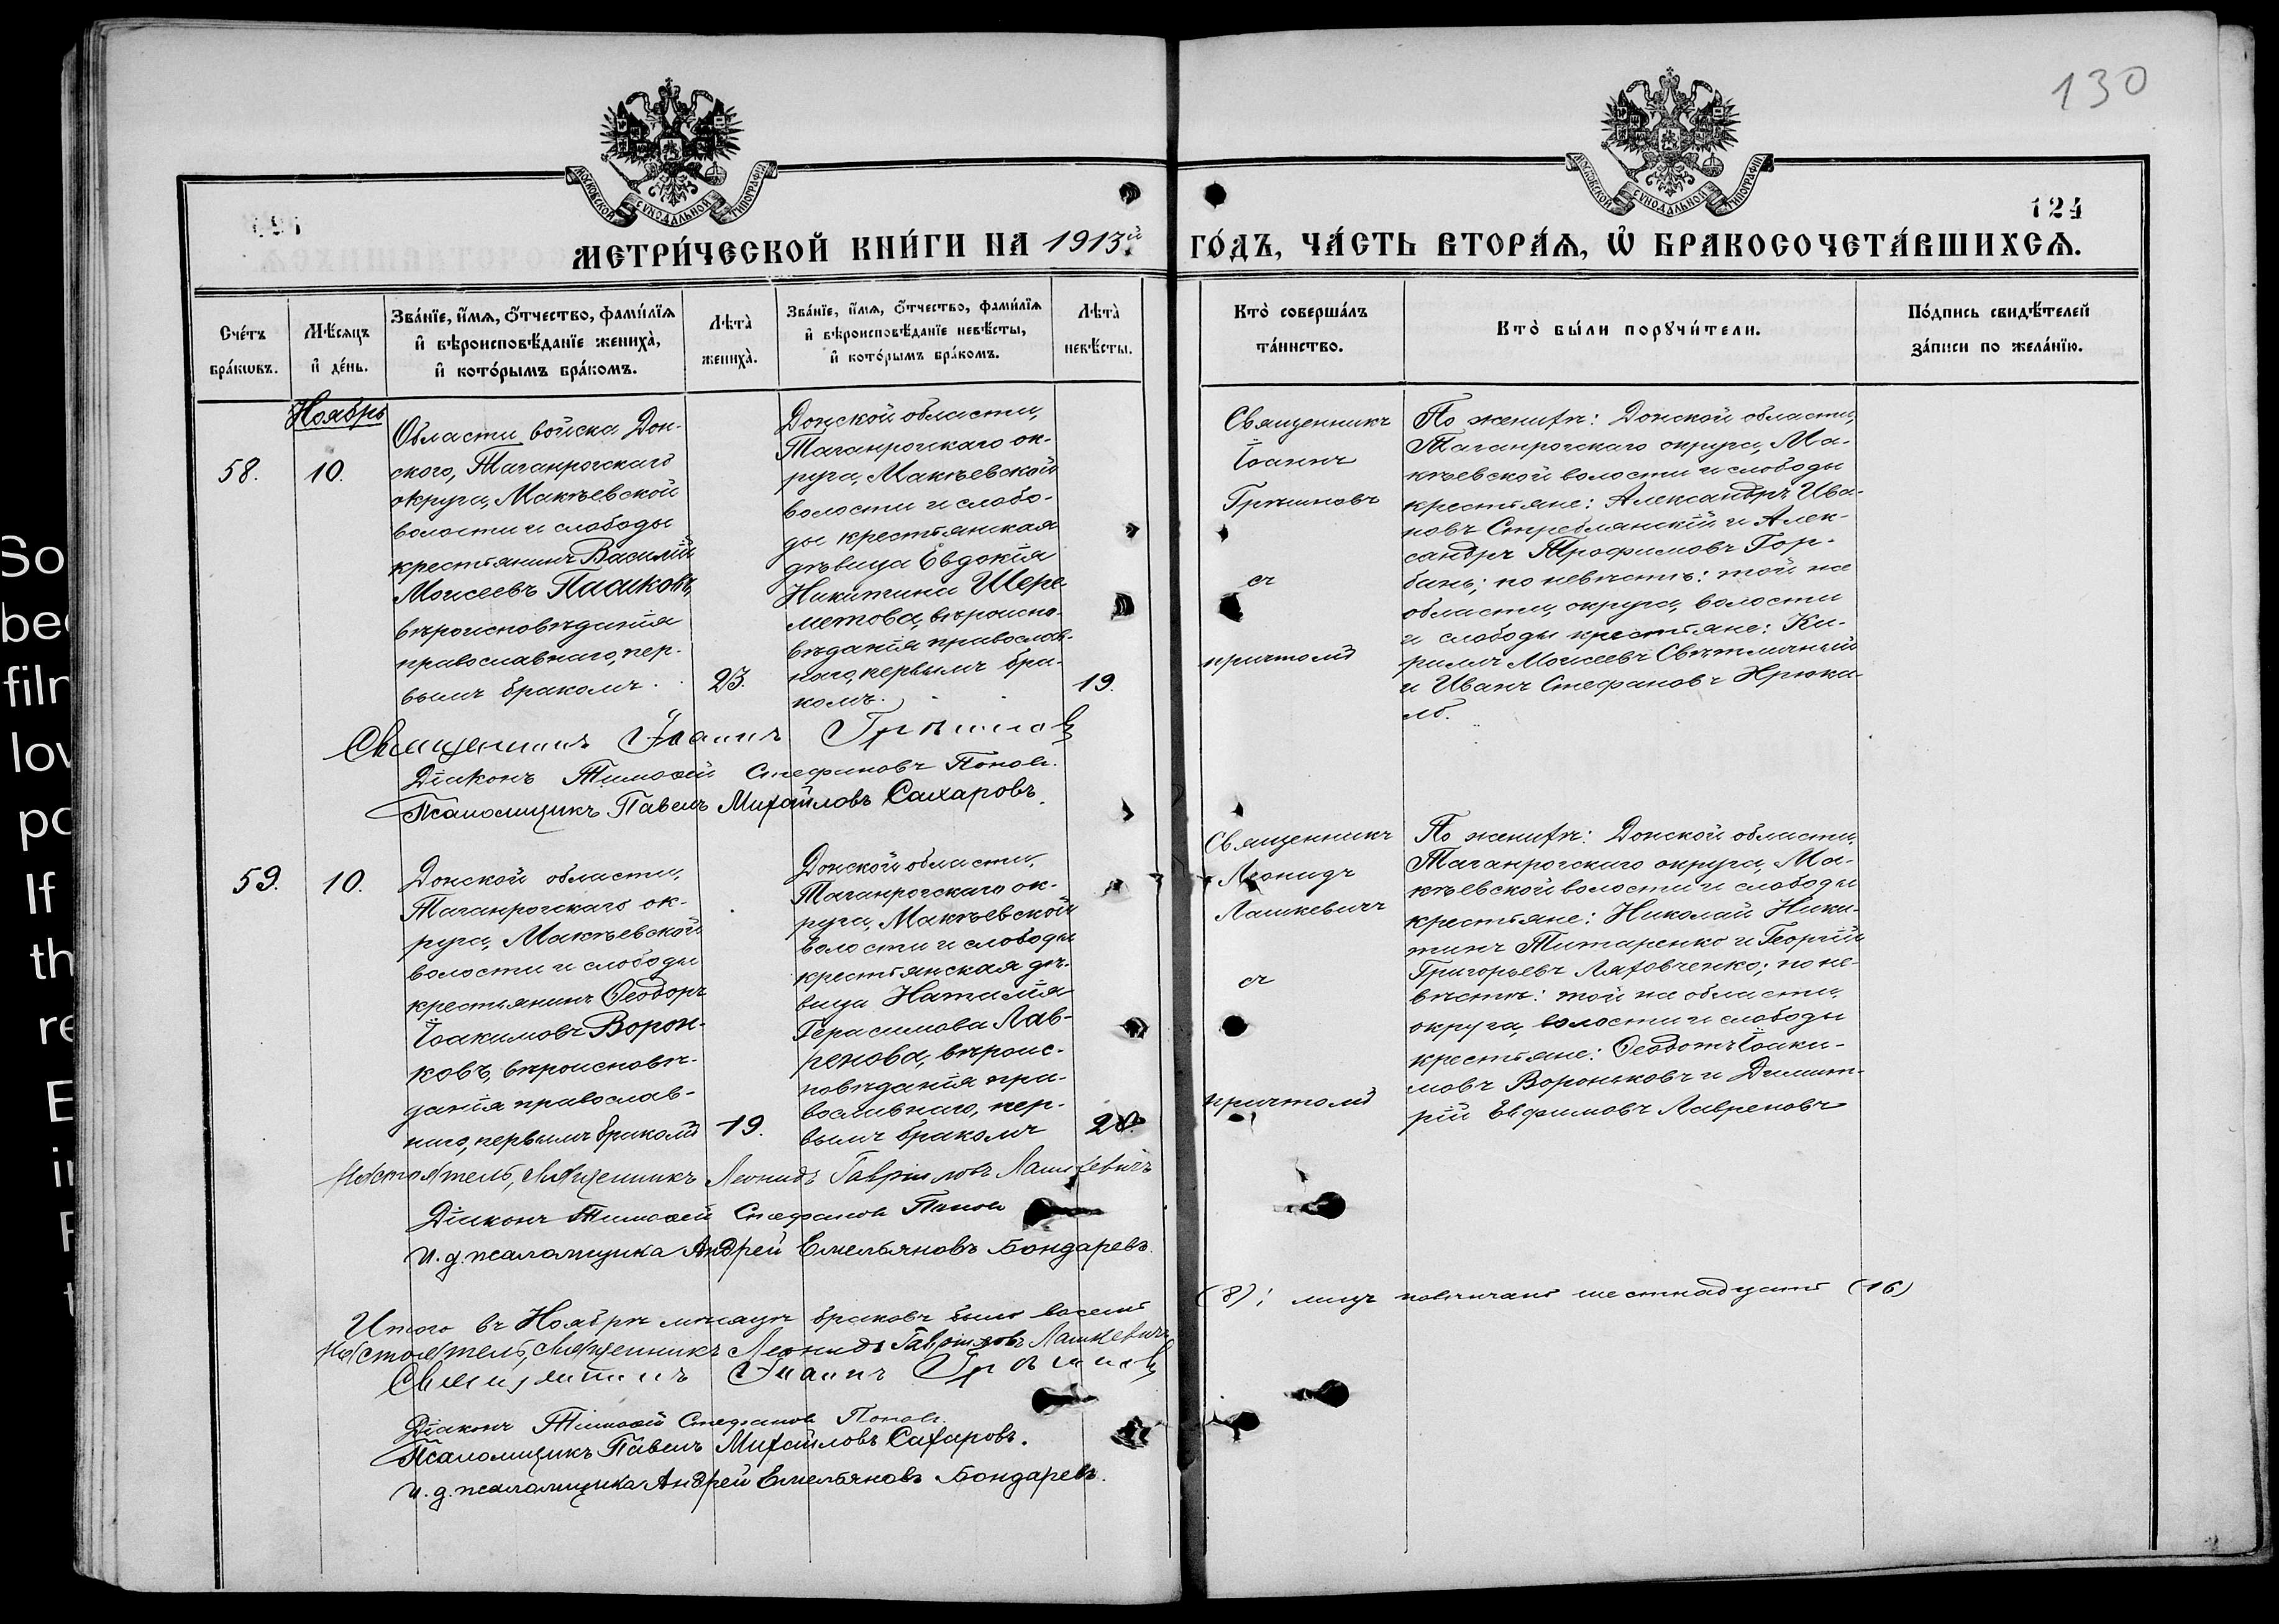 130
124
МОСКОВСКОЙ СѴНОДАЛЬНОЙ ТИПОГРАФІИ
МОСКОВСКОЙ СѴНОДАЛЬНОЙ ТИПОГРАФІИ
МЕТРИ́ЧЕСКОЙ КНИ́ГИ НА 1913й ГО́ДЪ, ЧА́СТЬ ВТОРА́Ѧ, Ѡ҆ БРАКОСОЧЕТА́ВШИХСѦ.
Сче́тъ бра́кѡвъ.
Мѣ́сѧцъ и҆ де́нь.
Зва́нїе, и҆́мѧ, о҆́тчество, фами́лїѧ
и҆ вѣроисповѣ́данїе жениха̀,
и҆ кото́рымъ бра́комъ.
Лѣта̀ жениха̀.
Зва́нїе, и҆́мѧ, о҆́тчество, фами́лїѧ
и҆ вѣроисповѣ́данїе невѣ́сты,
и҆ кото́рымъ бра́комъ.
Лѣта̀ невѣ́сты.
Кто̀ соверша́лъ та́инство.
Кто̀ бы́ли порꙋчи́тели.
По́дпись свидѣ́телей
за́писи по жела́нїю.
Ноябрь
58.
10.
Области войска Дон-
ского, Таганрогскаго
округа, Макѣевской
волости и слободы
крестьянинъ Василій
Моисеевъ Пашковъ,
вѣроисповѣданія
православнаго, пер-
вымъ бракомъ.
23.
Донской области,
Таганрогскаго ок-
руга, Макѣевской
волости и слобо-
ды крестьянская
дѣвица Евдокія
Никитина Шере-
метова, вѣроиспо-
вѣданія православ-
наго, первымъ бра-
комъ.
19.
Священникъ
Іоаннъ
Грѣшновъ
съ
причтомъ
По женихѣ: Донской области,
Таганрогскаго округа, Ма-
кѣевской волости и слободы
крестьяне: Александръ Ива-
новъ Стреблянскій и Алек-
сандръ Трофимовъ Гор-
бань; по невѣстѣ: той же
области, округа, волости
и слободы крестьяне: Ки-
риллъ Моисеевъ Свѣтличный
и Иванъ Стефановъ Хрюка-
ло.
Священникъ Іоаннъ Грѣшновъ
Діаконъ Тимоѳей Стефановъ Поповъ.
Псаломщикъ Павелъ Михайловъ Сахаровъ.
59.
10.
Донской области,
Таганрогскаго ок-
руга, Макѣевской
волости и слободы
крестьянинъ Ѳеодоръ
Іоакимовъ Ворон-
ковъ, вѣроисповѣ-
данія православ-
наго, первымъ бракомъ
19.
Донской области,
Таганрогскаго ок-
руга, Макѣевской
волости и слободы
крестьянская дѣ-
вица Наталія
Герасимова Лав-
ренова, вѣроис-
повѣданія пра-
вославнаго, пер-
вымъ бракомъ
20.
Священникъ
Леонидъ
Лашкевичъ
съ
причтомъ
По женихѣ: Донской области,
Таганрогскаго округа, Ма-
кѣевской волости и слободы
крестьяне: Николай Ники-
тинъ Титаренко и Георгій
Григорьевъ Ляховченко; по не-
вѣстѣ: той же области,
округа, волости и слободы
крестьяне: Ѳеодотъ Іоаки-
мовъ Вороньковъ и Димит-
рій Евфимовъ Лавреновъ
Настоятель, священникъ Леонидъ Гавріиловъ Лашкевичъ
Діаконъ Тимоѳей Стефановъ Поповъ
и. д. псаломщика Андрей Емельяновъ Бондаревъ.
Итого въ Ноябрѣ мѣсяцѣ браковъ было восемь (8); лицъ повѣнчано шестнадцать (16)
Настоятель, священникъ Леонидъ Гавріиловъ Лашкевичъ
Священникъ Іоаннъ Грѣшновъ
Діаконъ Тимоѳей Стефановъ Поповъ.
Псаломщикъ Павелъ Михайловъ Сахаровъ.
и. д. псаломщика Андрей Емельяновъ Бондаревъ.